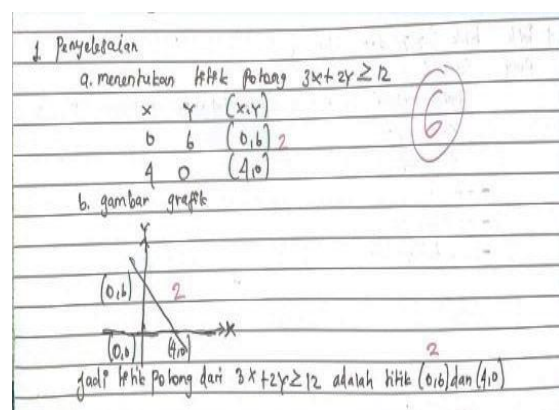 1. Penyelesaian
a. menentukan titik potong 3x + 2y ≥ 12
6
x y (x,y)
0 6 (0,6) 2
4 0 (4,0)
b. gambar grafik
Y
(0,6) 2
X
(0,0) (4,0)
2
Jadi titik potong dari 3x + 2y ≥ 12 adalah titik (0,6) dan (4,0)